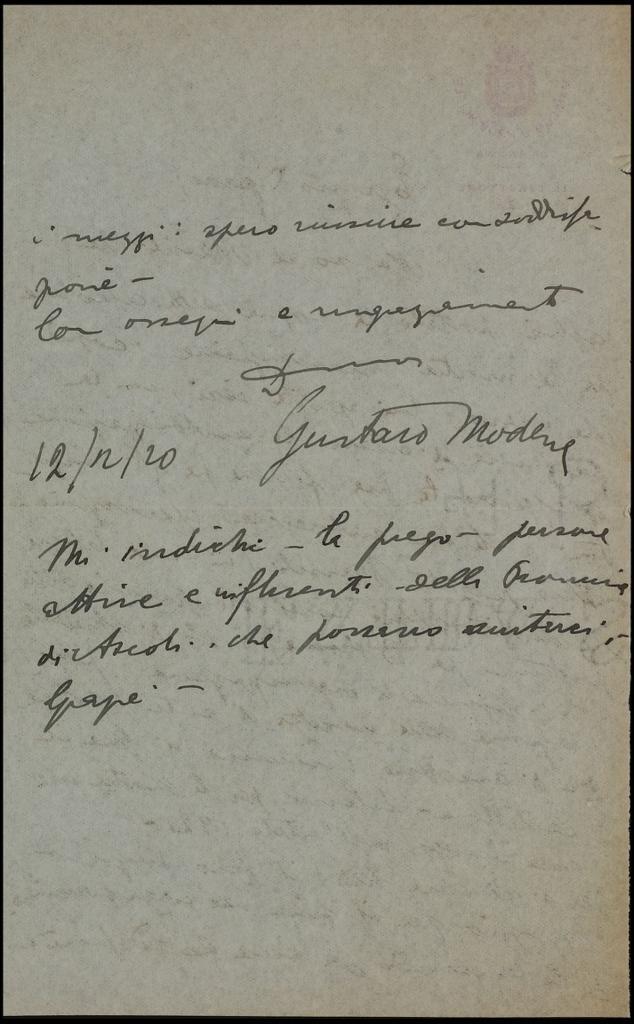 i mezzi: spero riuscire con soddisfa-
zione -
Con ossequi e ringraziamenti
Gustavo Modena
12/12/20
Mi indichi - la prego - persone
attive e influenti della Provincia
di Ascoli. che possano aiutarci,-
Grazie -